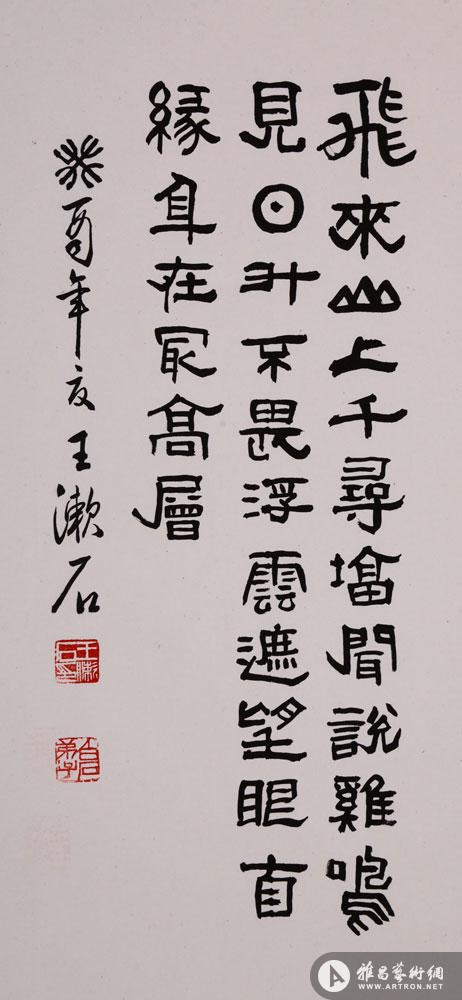 飛來山上千尋墖聞說雞鳴
見日升不畏浮雲遮望眼自
緣身在冣高層
癸酉年夏王漱石
王漱石印
白石弟子
雅昌藝術網
WWW.ARTRON.NET